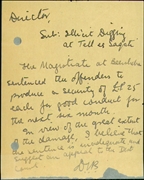 Director,
Sub: Illicit Digging
at Tell es Safi
The Magistrate at
sentenced the offenders to
produce a security of £P.25
each for good conduct for
the next six month
In view of the great extent
of the damage, I believe that
the sentence is inadequate and
suggest an appeal to the Dist
Court